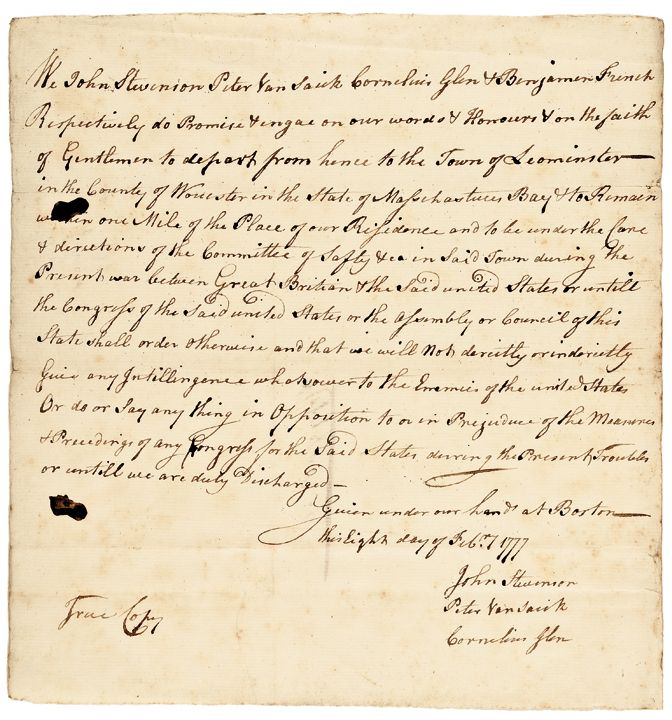 We John Stevenson Peter Van Saick Cornelius Glen & Benjamen French
Respectively do Promise & engae on our words & Honours & on the faith
of Gentlemen to depart from hence to the Town of Leominster—
in the County of Worcester in the State of Massachastuces Bay & to Remain
within one Mile of the Place of our Risidence and to be under the Care
& directions of the Committee of Safty &ca in Said Town during the
Present war betwen Great Britian & the Said united States or untill
the Congress of the Said united States or the Assembly or Council of this
State shall order otherwise and that we will Not derectly or inderictly
Give any Intillingence whatsower to the Enemies of the united States
Or do or Say any thing in Opposition to or in Prejuduce of the Measures
& Precedings of any Congress for the Said States during the Present Troubles
or untill we are duly Discharged—
Given under our hands at Boston—
this Eight day of Febry 1777
John Stevenson
Peter Van Saick
Cornelius Glen
True Copy